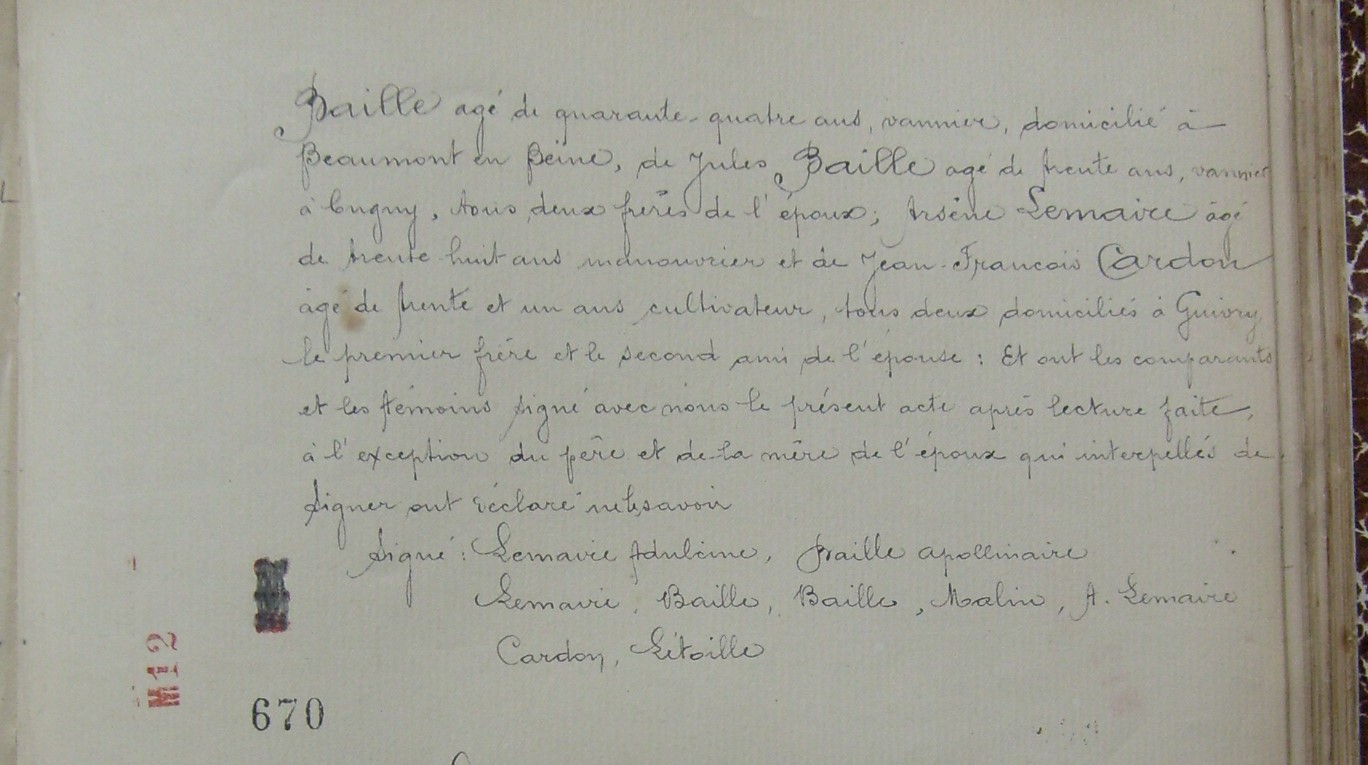 Baille agé de quarante-quatre ans, vannier, domicilié à
Beaumont en Beine, de Jules Baille agé de trente ans, vannier
à Cugny, tous deux frères de l'époux; Arsène Lemaire âgé
de trente huit ans manouvrier et de Jean-François Cardon
âgé de trente et un ans cultivateur, tous deux domiciliés à Guivry
le premier frère et le second ami de l'épouse : Et ont les comparants
et les témoins signé avec nous le présent acte après lecture faite,
à l'exception du père et de la mère de l'époux qui interpellés de
signer ont déclaré ne le savoir
Signé : Lemaire, Baille apollinaire
Lemaire, Baille, Baille, Malin, A. Lemaire
Cardon, Létoille
M12
670